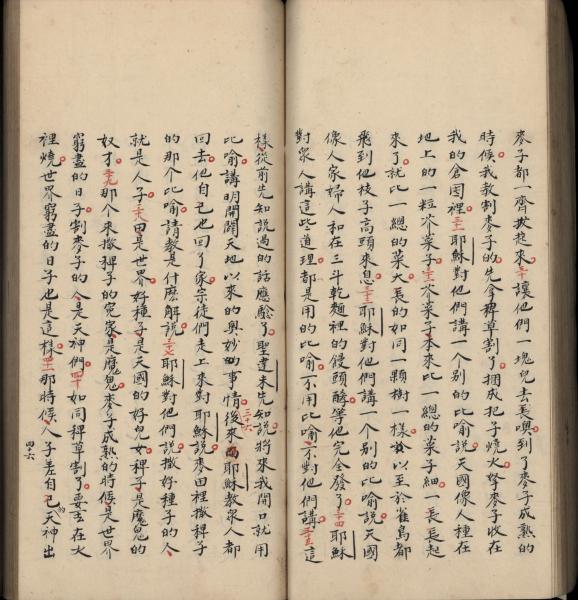 麥子都一齊拔起來三十讓他們一塊兒去長噢到了麥子成熟的
時候我教割麥子的先拿稗草割了捆成把子燒火拏麥子收在
我的倉囤裡三一耶穌對他們講一个别的比喻說天國像人種在
地上的一粒芥菜子三二芥菜子本來比一總的菜子細一長長起
來了就比一總的菜大長的如同一顆樹一樣於以至於雀鳥都
飛到他枝子高頭來息三三耶穌對他們講一个别的比喻說天國
像人家婦人和在三斗乾麵裡的饅頭酵拏他完全發了三四耶穌
對衆人講這些道理都是用的比喻不用比喻不對他們講三五這
樣從前先知說過的話應驗了聖達未先知說將來我開口就用
比喻講明開闢天地以來的奥妙的事情三六後來而耶穌教衆人都
回去他自己也回了家宗徒們走上來對耶穌說麥田裡撒稗子
的那个比喻請教是什麽解說三七耶穌對他們說撒好種子的人
就是人子三八田是世界好種子是天國的好兒女稗子是魔鬼的
奴才三九那个來撒稗子的寃家是魔鬼麥子成熟的時候是世界
窮盡的日子割麥子的人是天神們四十如同稗草割了要丟在火
裡燒世界窮盡的日子也是這樣四一那時候人子差自己的天神出
四六